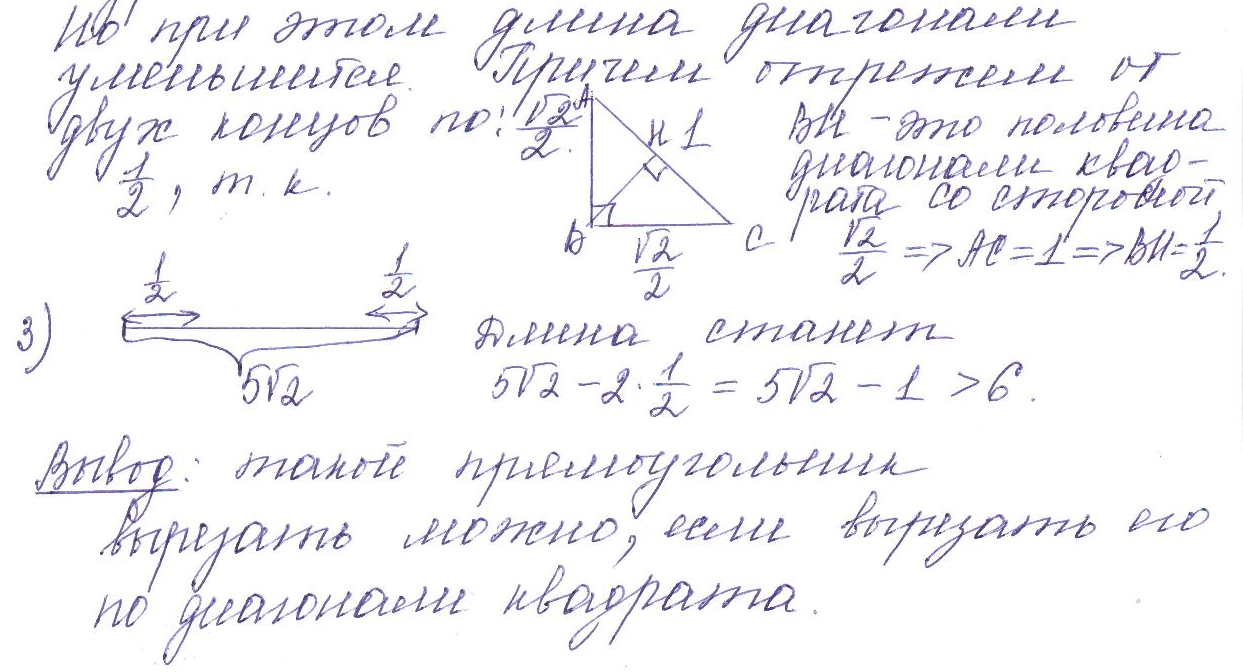 Но при этом длина диагонали
уменьшится. Причем отрежем от
двух концов по:
1/2, т.к.
A
√2/2
H 1
B
C
√2/2
BH – это половина
диагонали квад-
рата со стороной
√2/2 => AC = 1 => BH = 1/2.
3)
1/2
1/2
5√2
Длина станет
5√2 - 2·1/2 = 5√2 - 1 > 6.
Вывод: такой прямоугольник
вырезать можно, если вырезать его
по диагонали квадрата.